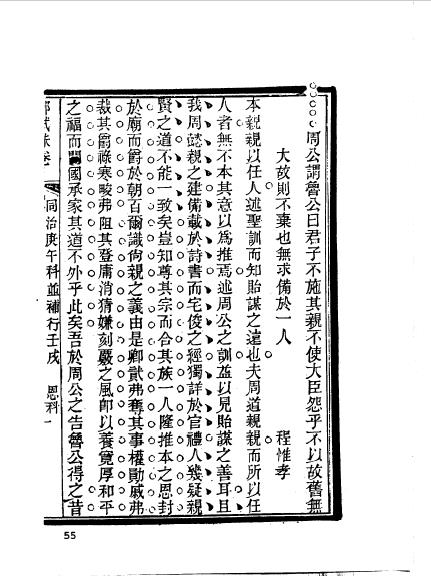 周公謂魯公曰君子不施其親不使大臣怨乎不以故舊無
大故則不棄也無求備於一人
程惟孝
本親親以任人述聖訓而知貽謀之遠也夫周道親親而所以任
人者無不本其意以為推焉述周公之訓益以見貽謀之善耳且
我周懿親之建備載於詩書而宅俊之經獨詳於官禮人幾疑親
賢之道不能一致矣豈知尊其宗而合其族一人隆推本之恩封
於廟而爵於朝百爾識尚親之義由是卿貳弗奪其事權勛戚弗
裁其爵祿寒畯弗阻其登庸消猜嫌刻嚴之風即以養寬厚和平
之福而開國承家其道不外乎此矣吾於周公之告魯公得之昔
同治庚午科並補行壬戌
恩科
一
55